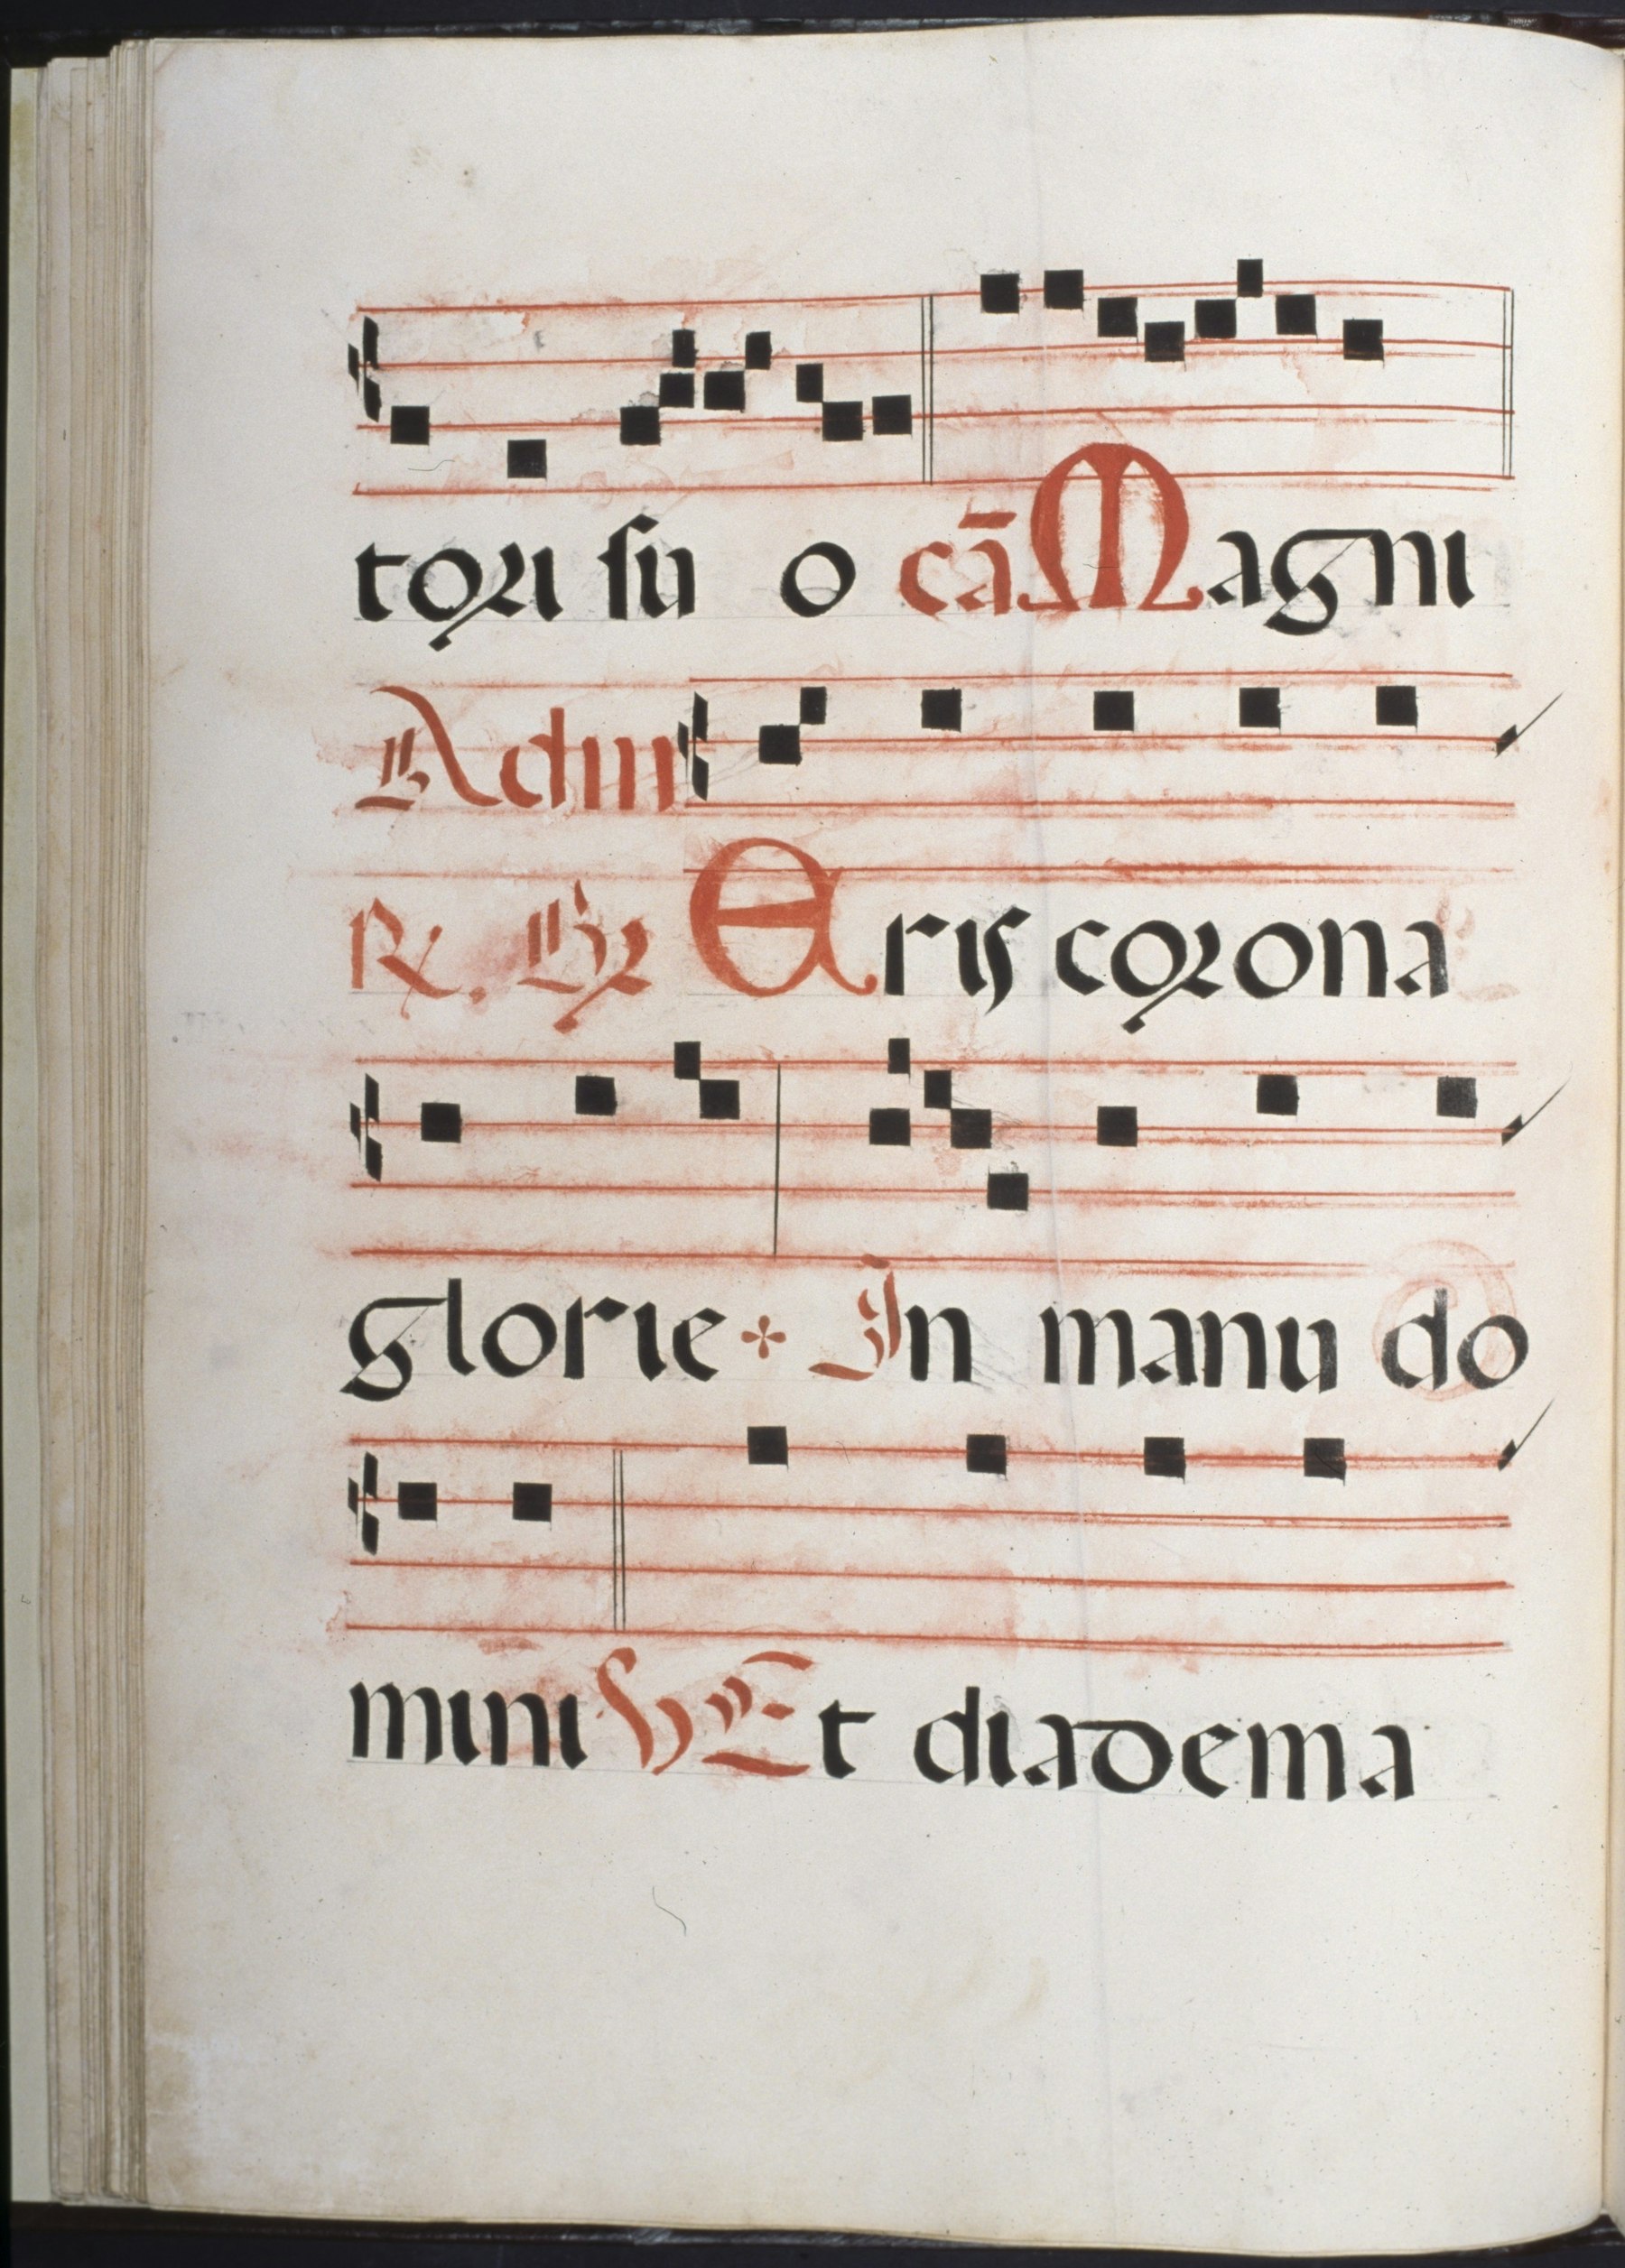 tori su o cā Magni
Ad m
R. Br Eris corona
glorie + In manu do
mini V Et diadema